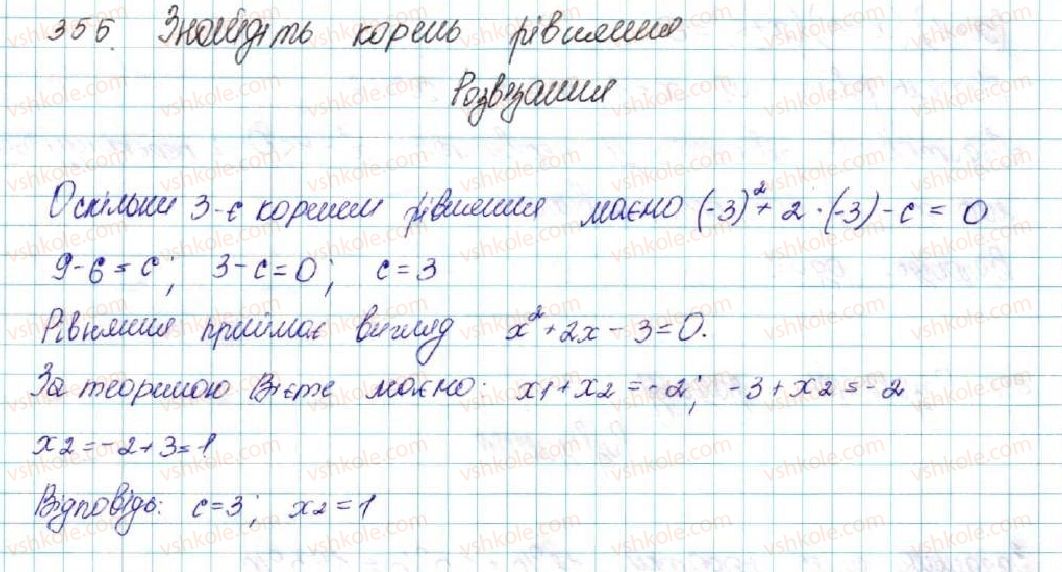 356. Знайдіть корень рівняння
Розв'язання
Оскільки 3-є коренем рівняння маємо (-3)² + 2·(-3) - c = 0
9-6 = c; 3-c=0; c=3
Рівняння приймає вигляд x² + 2x - 3 = 0.
За теоремою Вієте маємо: x1 + x2 = -2; -3 + x2 = -2
x2 = -2+3 = 1
Відповідь: c=3; x2 = 1